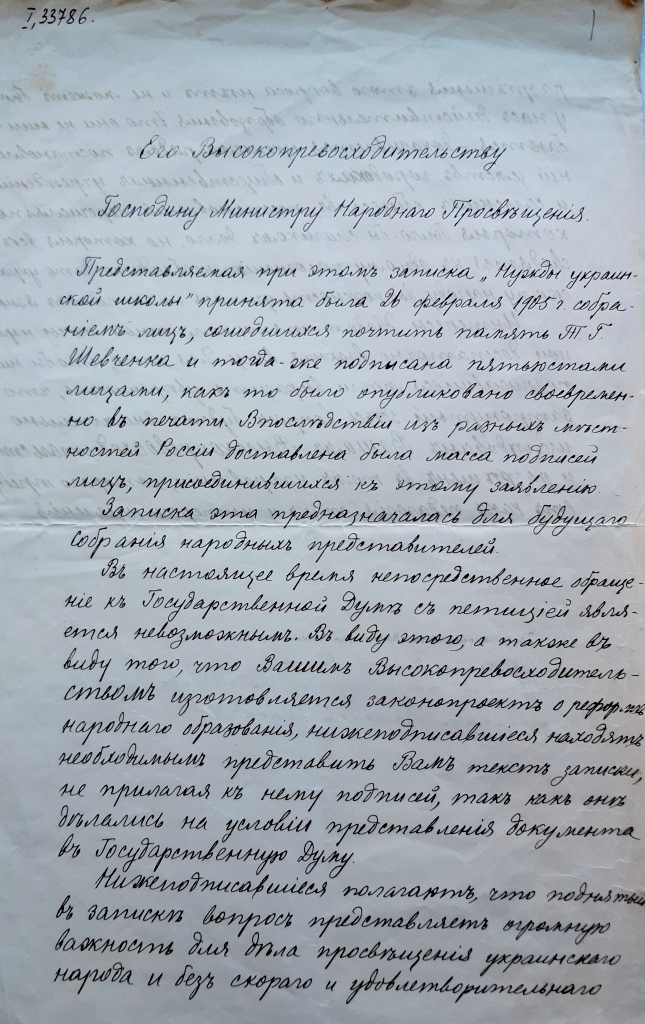 I, 33786.
1
Его Высокопревосходительству
Господину Министру Народнаго Просвѣщенія.
Представляемая при этомъ записка „Нужды украин-
ской школы" принята была 26 февраля 1905 г. собра-
ніемъ лицъ, сошедшихся почтить память Т. Г.
Шевченка и тогда-же подписана пятьюстами
лицами, какъ то было опубликовано своевремен-
но въ печати. Впослѣдствіи изъ разныхъ мѣст-
ностей Россіи доставлена была масса подписей
лицъ, присоединившихся къ этому заявленію.
Записка эта предназначалась для будущаго
собранія народныхъ представителей.
Въ настоящее время непосредственное обраще-
ніе къ Государственной Думѣ съ петиціей явля-
ется невозможнымъ. Въ виду этого, а также въ
виду того, что Вашимъ Высокопревосходитель-
ствомъ изготовляется законопроектъ о реформѣ
народнаго образованія, нижеподписавшіеся находятъ
необходимымъ представить Вамъ текстъ записки,
не прилагая къ нему подписей, такъ какъ онѣ
дѣлались на условіи представленія документа
въ Государственную Думу.
Нижеподписавшіеся полагаютъ, что поднятый
въ запискѣ вопросъ представляетъ огромную
важность для дѣла просвѣщенія украинскаго
народа и безъ скораго и удовлетворительнаго